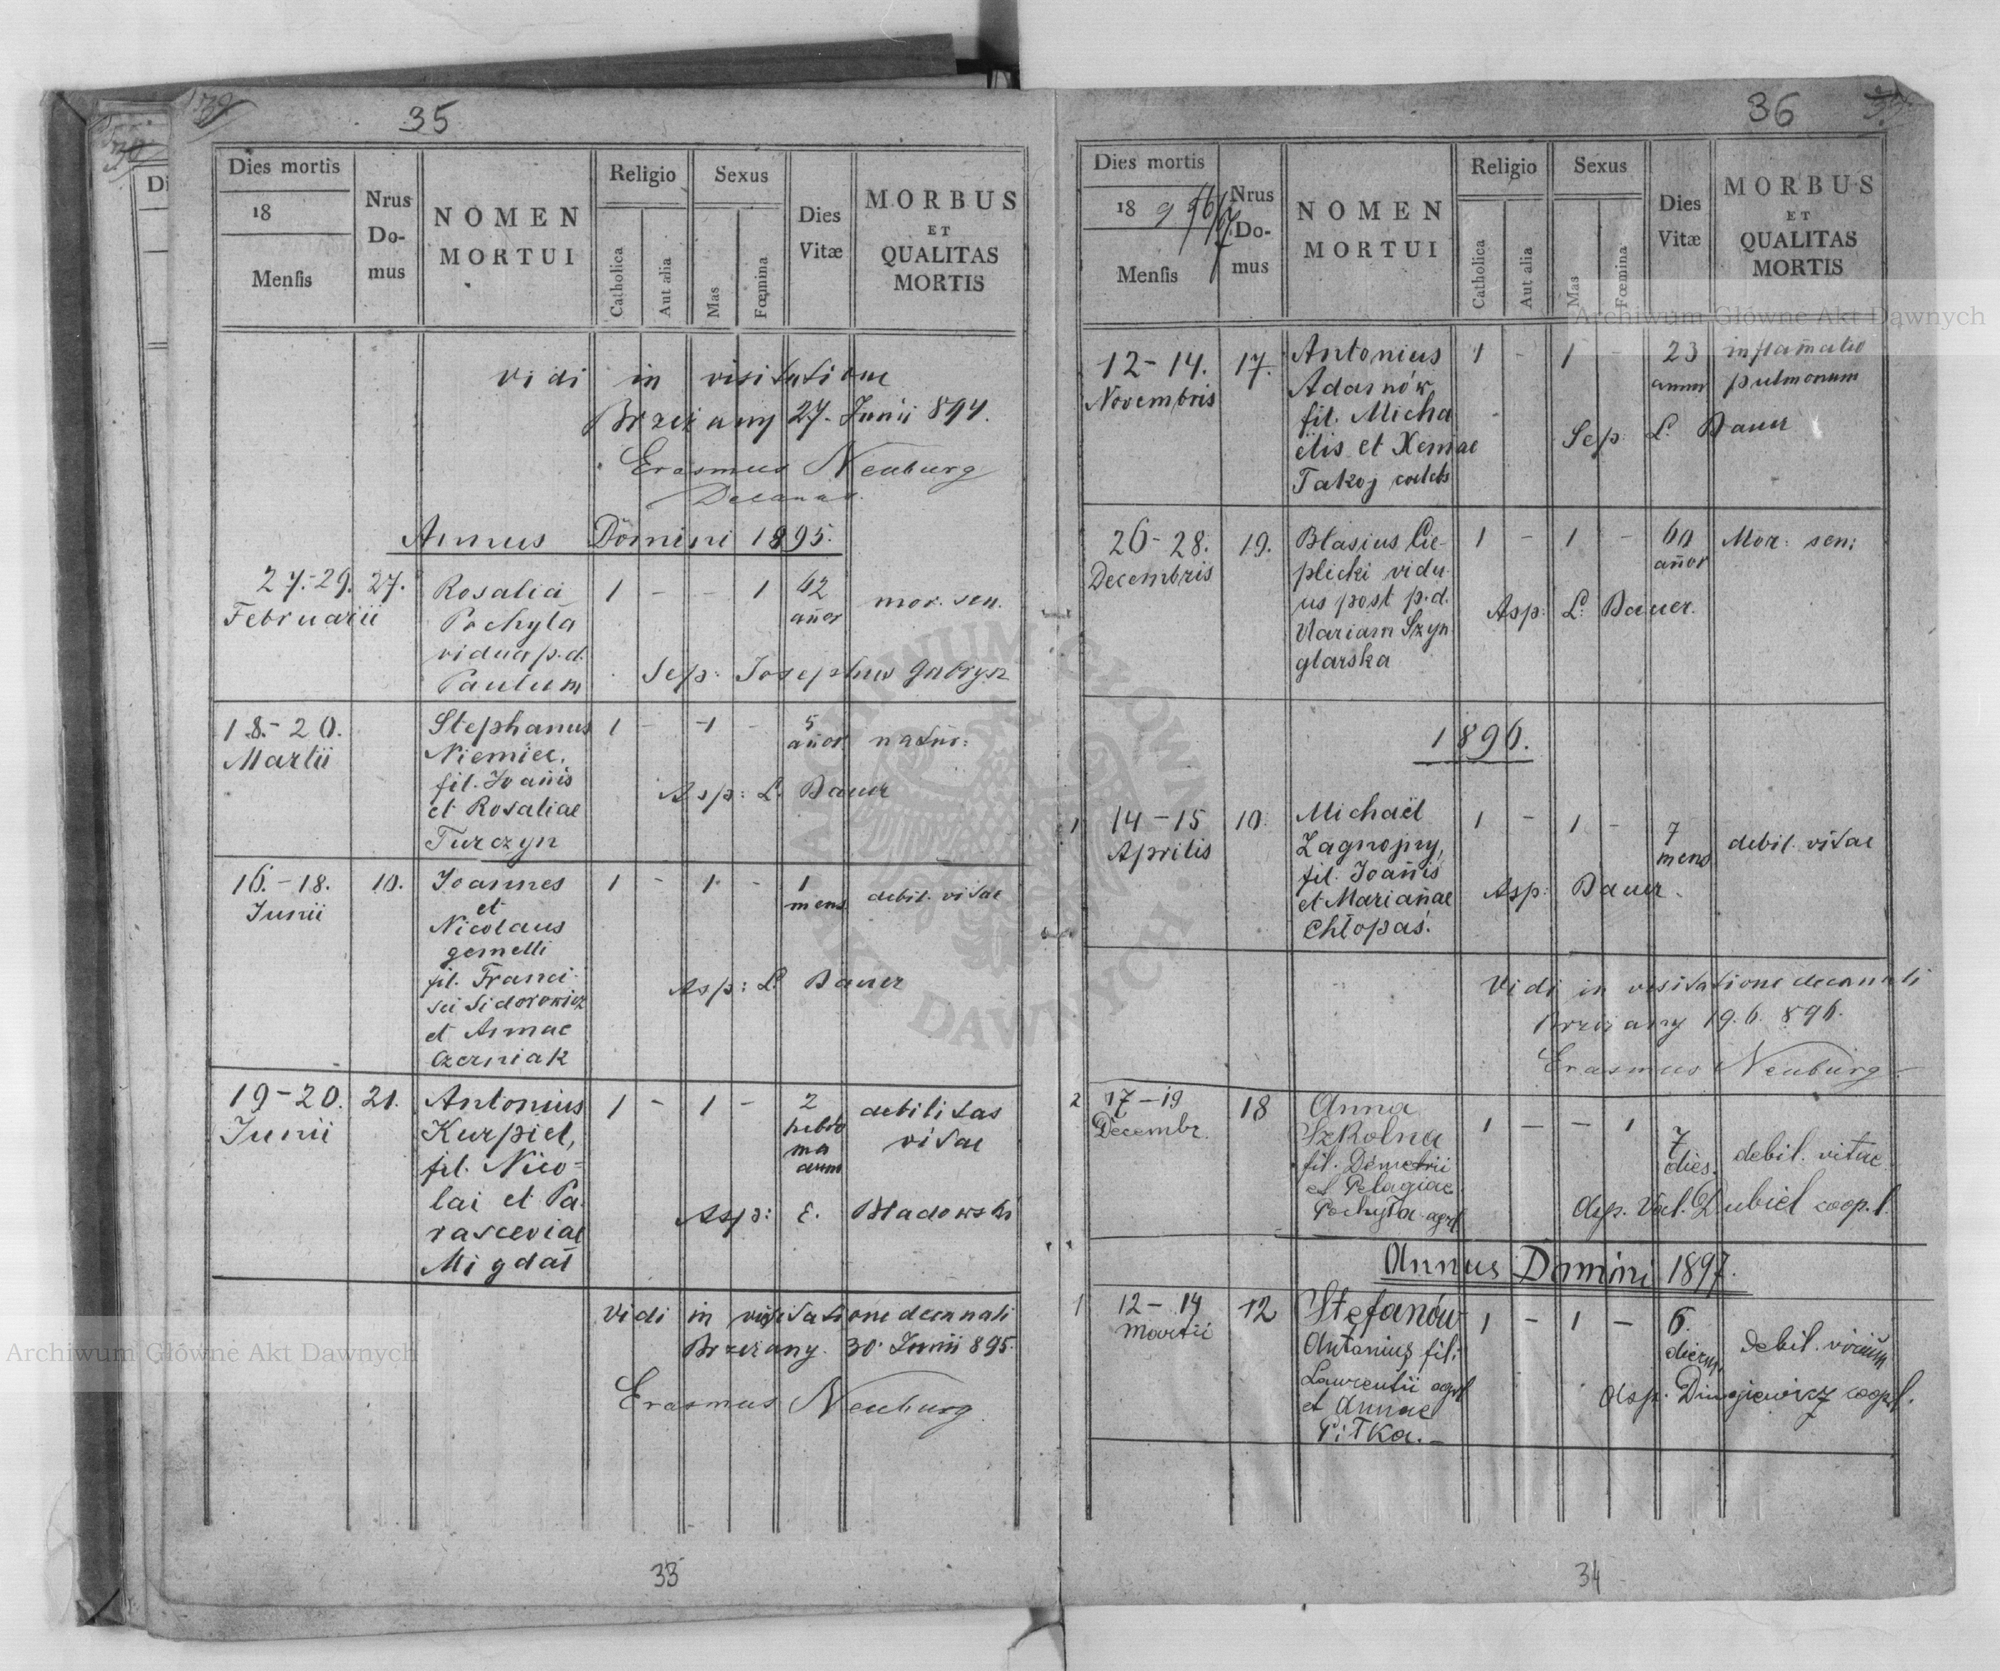 35
Dies mortis
18
Mensis
Nrus
Do-
mus
NOMEN
MORTUI
Religio
Catholica
Aut alia
Sexus
Mas
Fœmina
Dies
Vitæ
MORBUS
ET
QUALITAS
MORTIS
Vidi in visitatione
Brzeżany 27. Junii 894.
Erasmus Neuburg
Decanus.
Annus Domini 1895.
27.-29. 27. Rosalia 1 - - 1 42
Februarii Pochyła añor mor. sen.
vidua p.d.
Paulum Sep: Josephus Gabrysz
18.-20. Stephanus 1 - 1 - 5
Martii Niemiec, añor natur:
fil. Joañis
et Rosaliae Asp: L. Bauer
Turczyn
16.-18. 10. Joannes 1 - 1 - 1
Junii et mens debil. vitae
Nicolaus
gemelli
fil. Franci-
sci Sidorowicz Asp: L. Bauer
et Annae
Czerniak
19-20. 21. Antonius 1 - 1 - 2 debilitas
Junii Kurpiel, hebdo vitae
fil. Nico- ma
lai et Pa- dum
rasceviae Asp: E. Bładowski
Migdał
Vidi in visitatione decanali
Brzeżany 30. Junii 895.
Erasmus Neuburg
33
36
Dies mortis
18 9
Mensis
Nrus
Do-
mus
NOMEN
MORTUI
Religio
Catholica
Aut alia
Sexus
Mas
Fœmina
Dies
Vitæ
MORBUS
ET
QUALITAS
MORTIS
12-14. 17. Antonius 1 - 1 - 23 inflam̃atio
Novembris Adamów annor pulmonum
fil. Micha
elis et Xeniae Sep: L. Bauer
Takoj coelebs
26-28. 19. Blasius Cie- 1 - 1 - 60 Mor: sen:
Decembris plicki vidu- añor
us post p.d. Asp: L. Bauer.
Mariam Szyn
glarska
1896.
1 14-15 10. Michaël 1 - 1 - 7
Aprilis Zagnojny, mens debil. vitae
fil. Joañis
et Mariañae Asp: Bauer.
Chłopaś.
Vidi in visitatione decanali
Brzeżany 19.6. 896.
Erasmus Neuburg
2 17-19 18 Anna 1 - - 1 7
Decembr. Szkolna dies. debil. vitae
fil. Demetrii
et Pelagiae
Pochyła agr. Asp. Val. Dubiel coop. l.
Annus Domini 1897.
1 12-14 12 Stefanów 1 - 1 - 6.
Martii Antonius fil: dierum debil. virium
Laurentii agr.
et Annae Asp.
Pitka.
34
Archiwum Główne Akt Dawnych
Archiwum Główne Akt Dawnych
ARCHIWUM GŁÓWNE AKT DAWNYCH